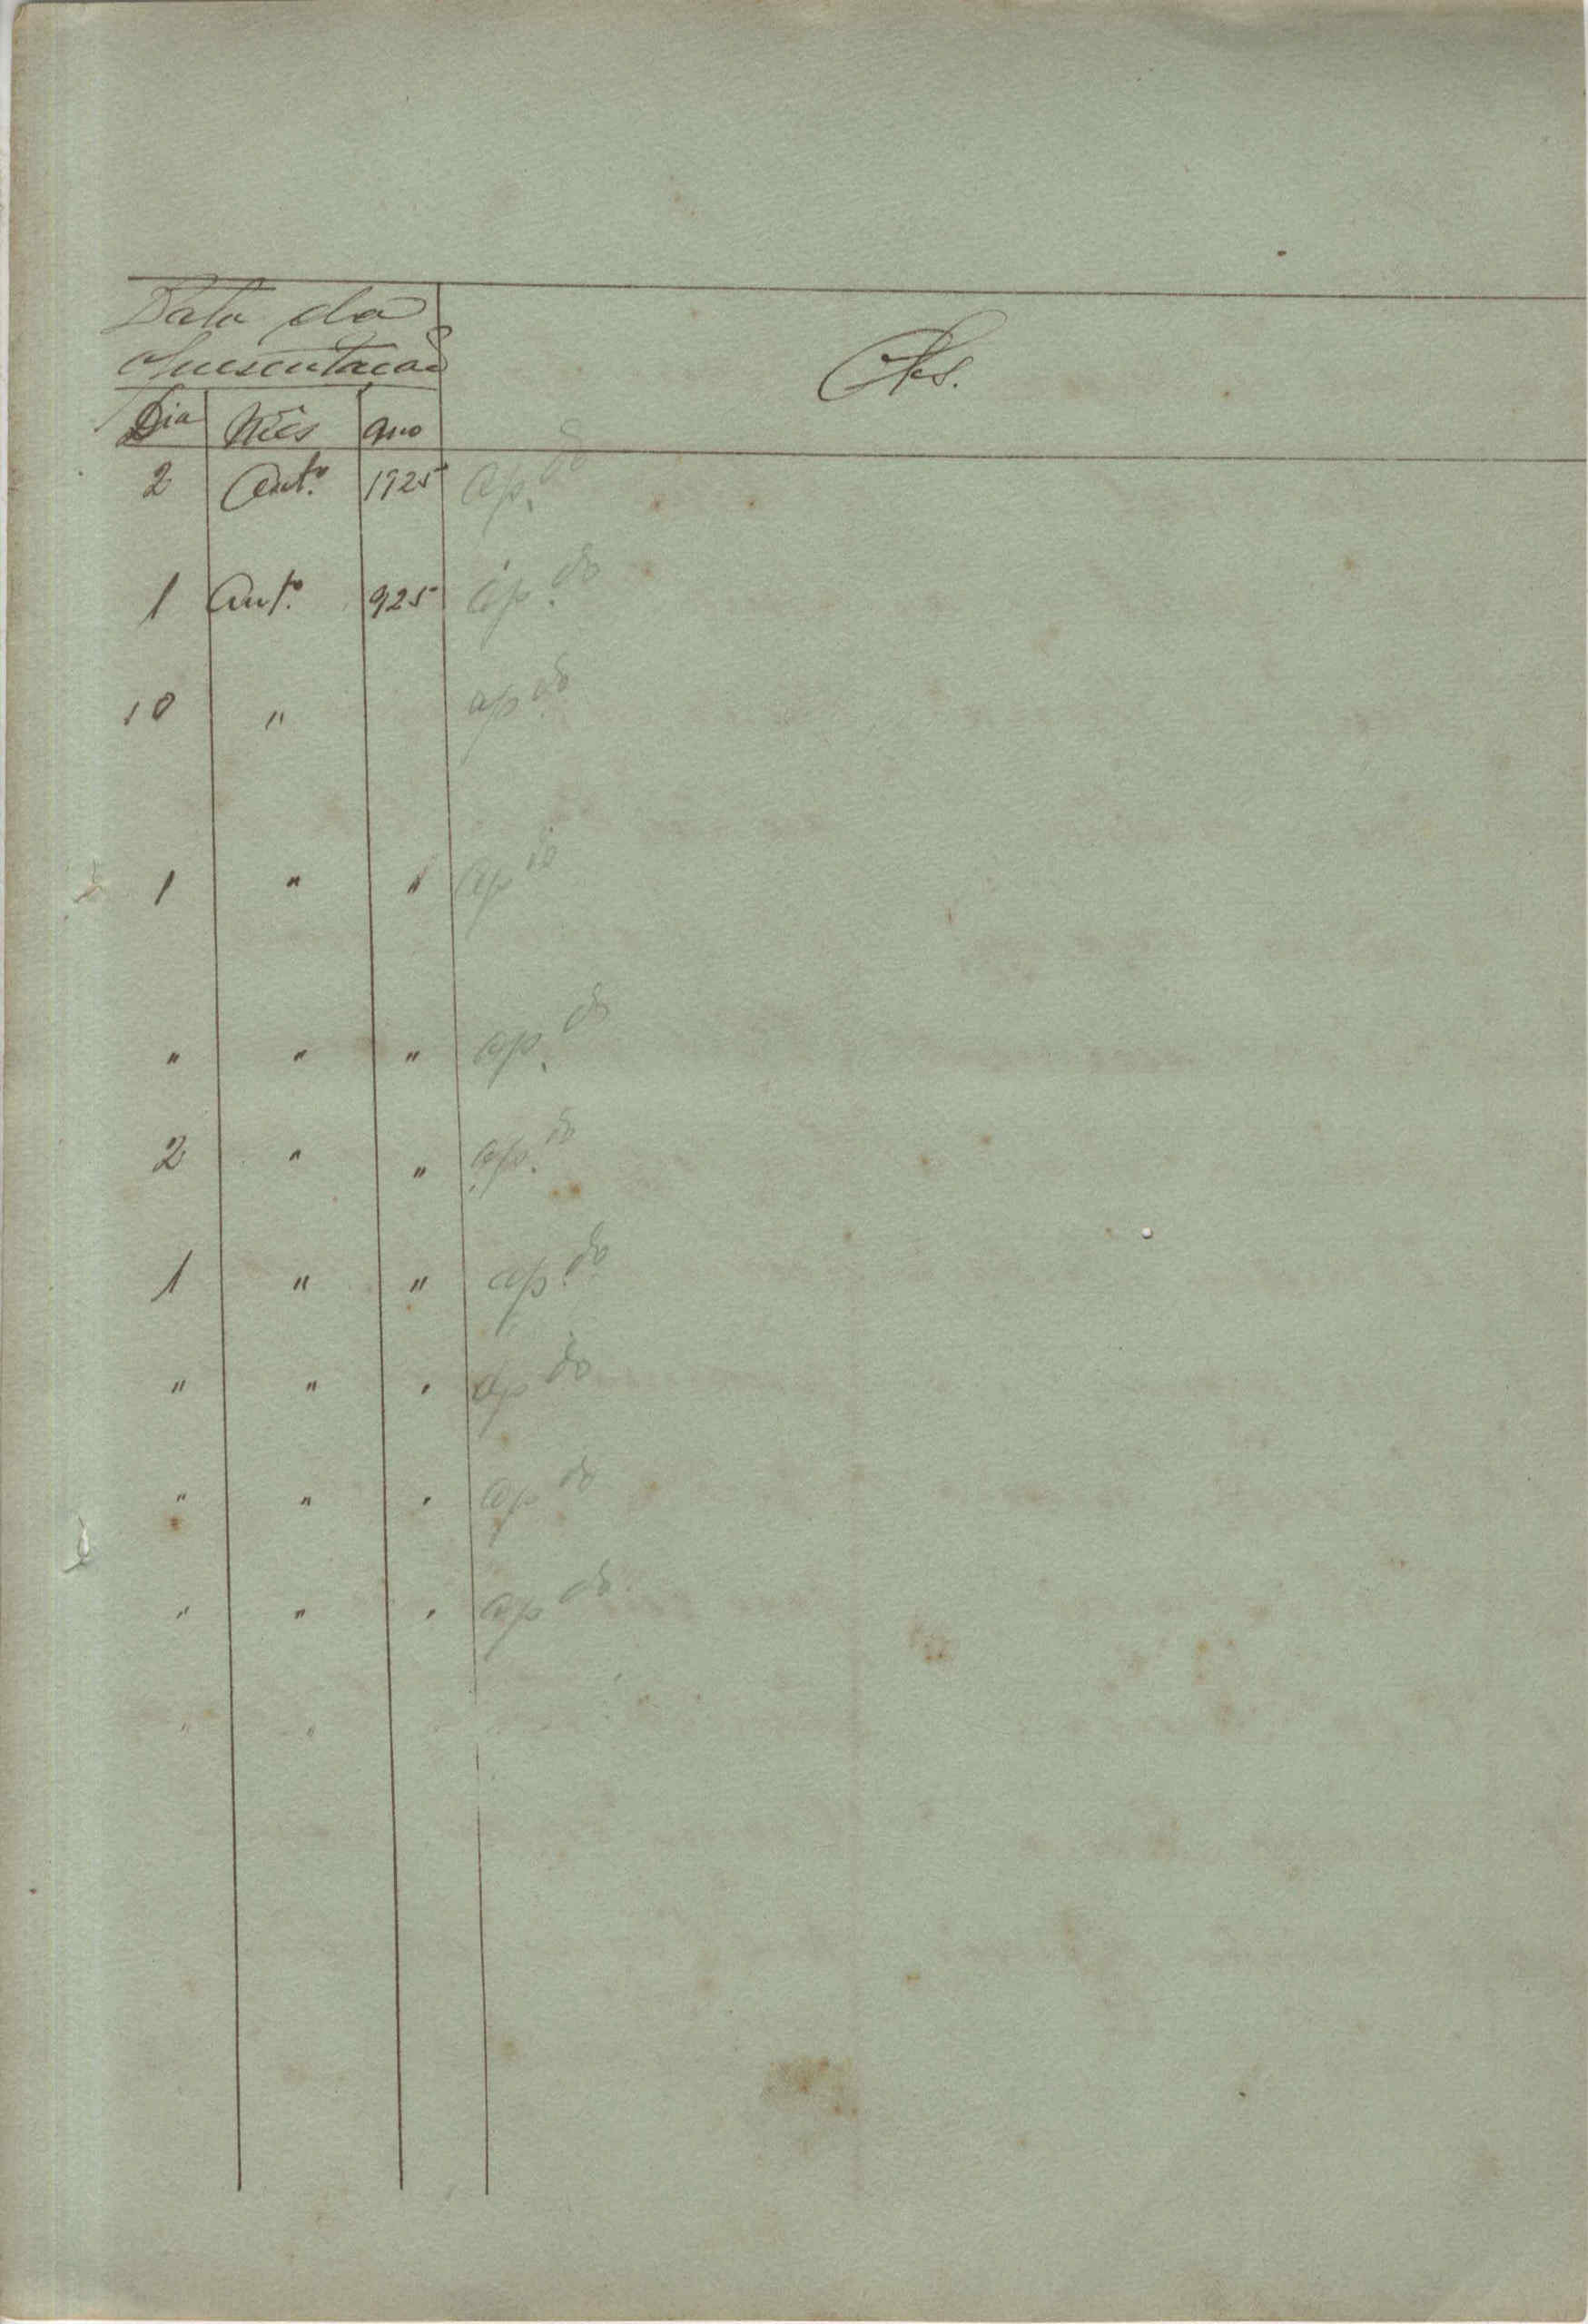 Data da
Apresentação
Obs.
Dia Mês Ano
2 Out.º 1925 ap.do
1 Out.º 925 ap.do
10 " ap.do
1 " " ap.do
" " " ap.do
2 " " ap.do
1 " " ap.do
" " " ap.do
" " " ap.do
" " " ap.do
" "